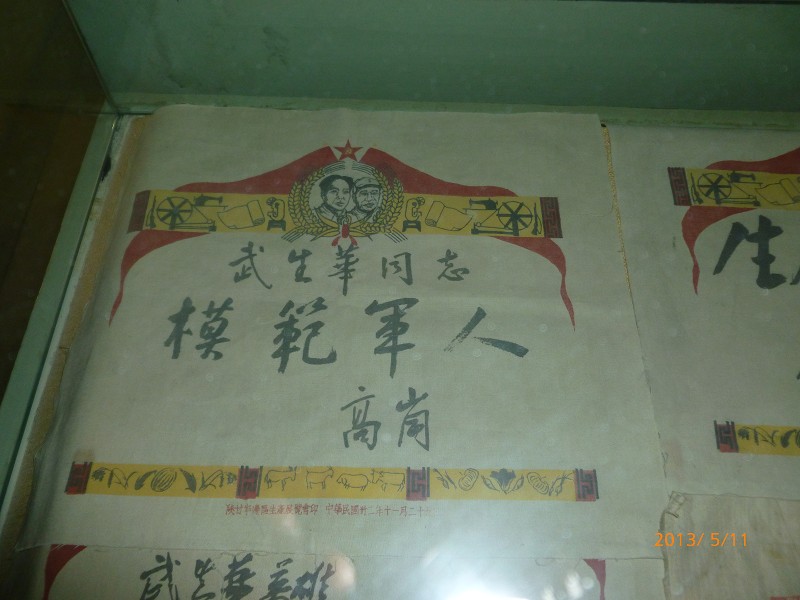 武生華同志
模範軍人
高崗
陝甘寧邊區生產展覽會印 中華民國卅二年十一月二十
生
武生華英雄
2013/ 5/11